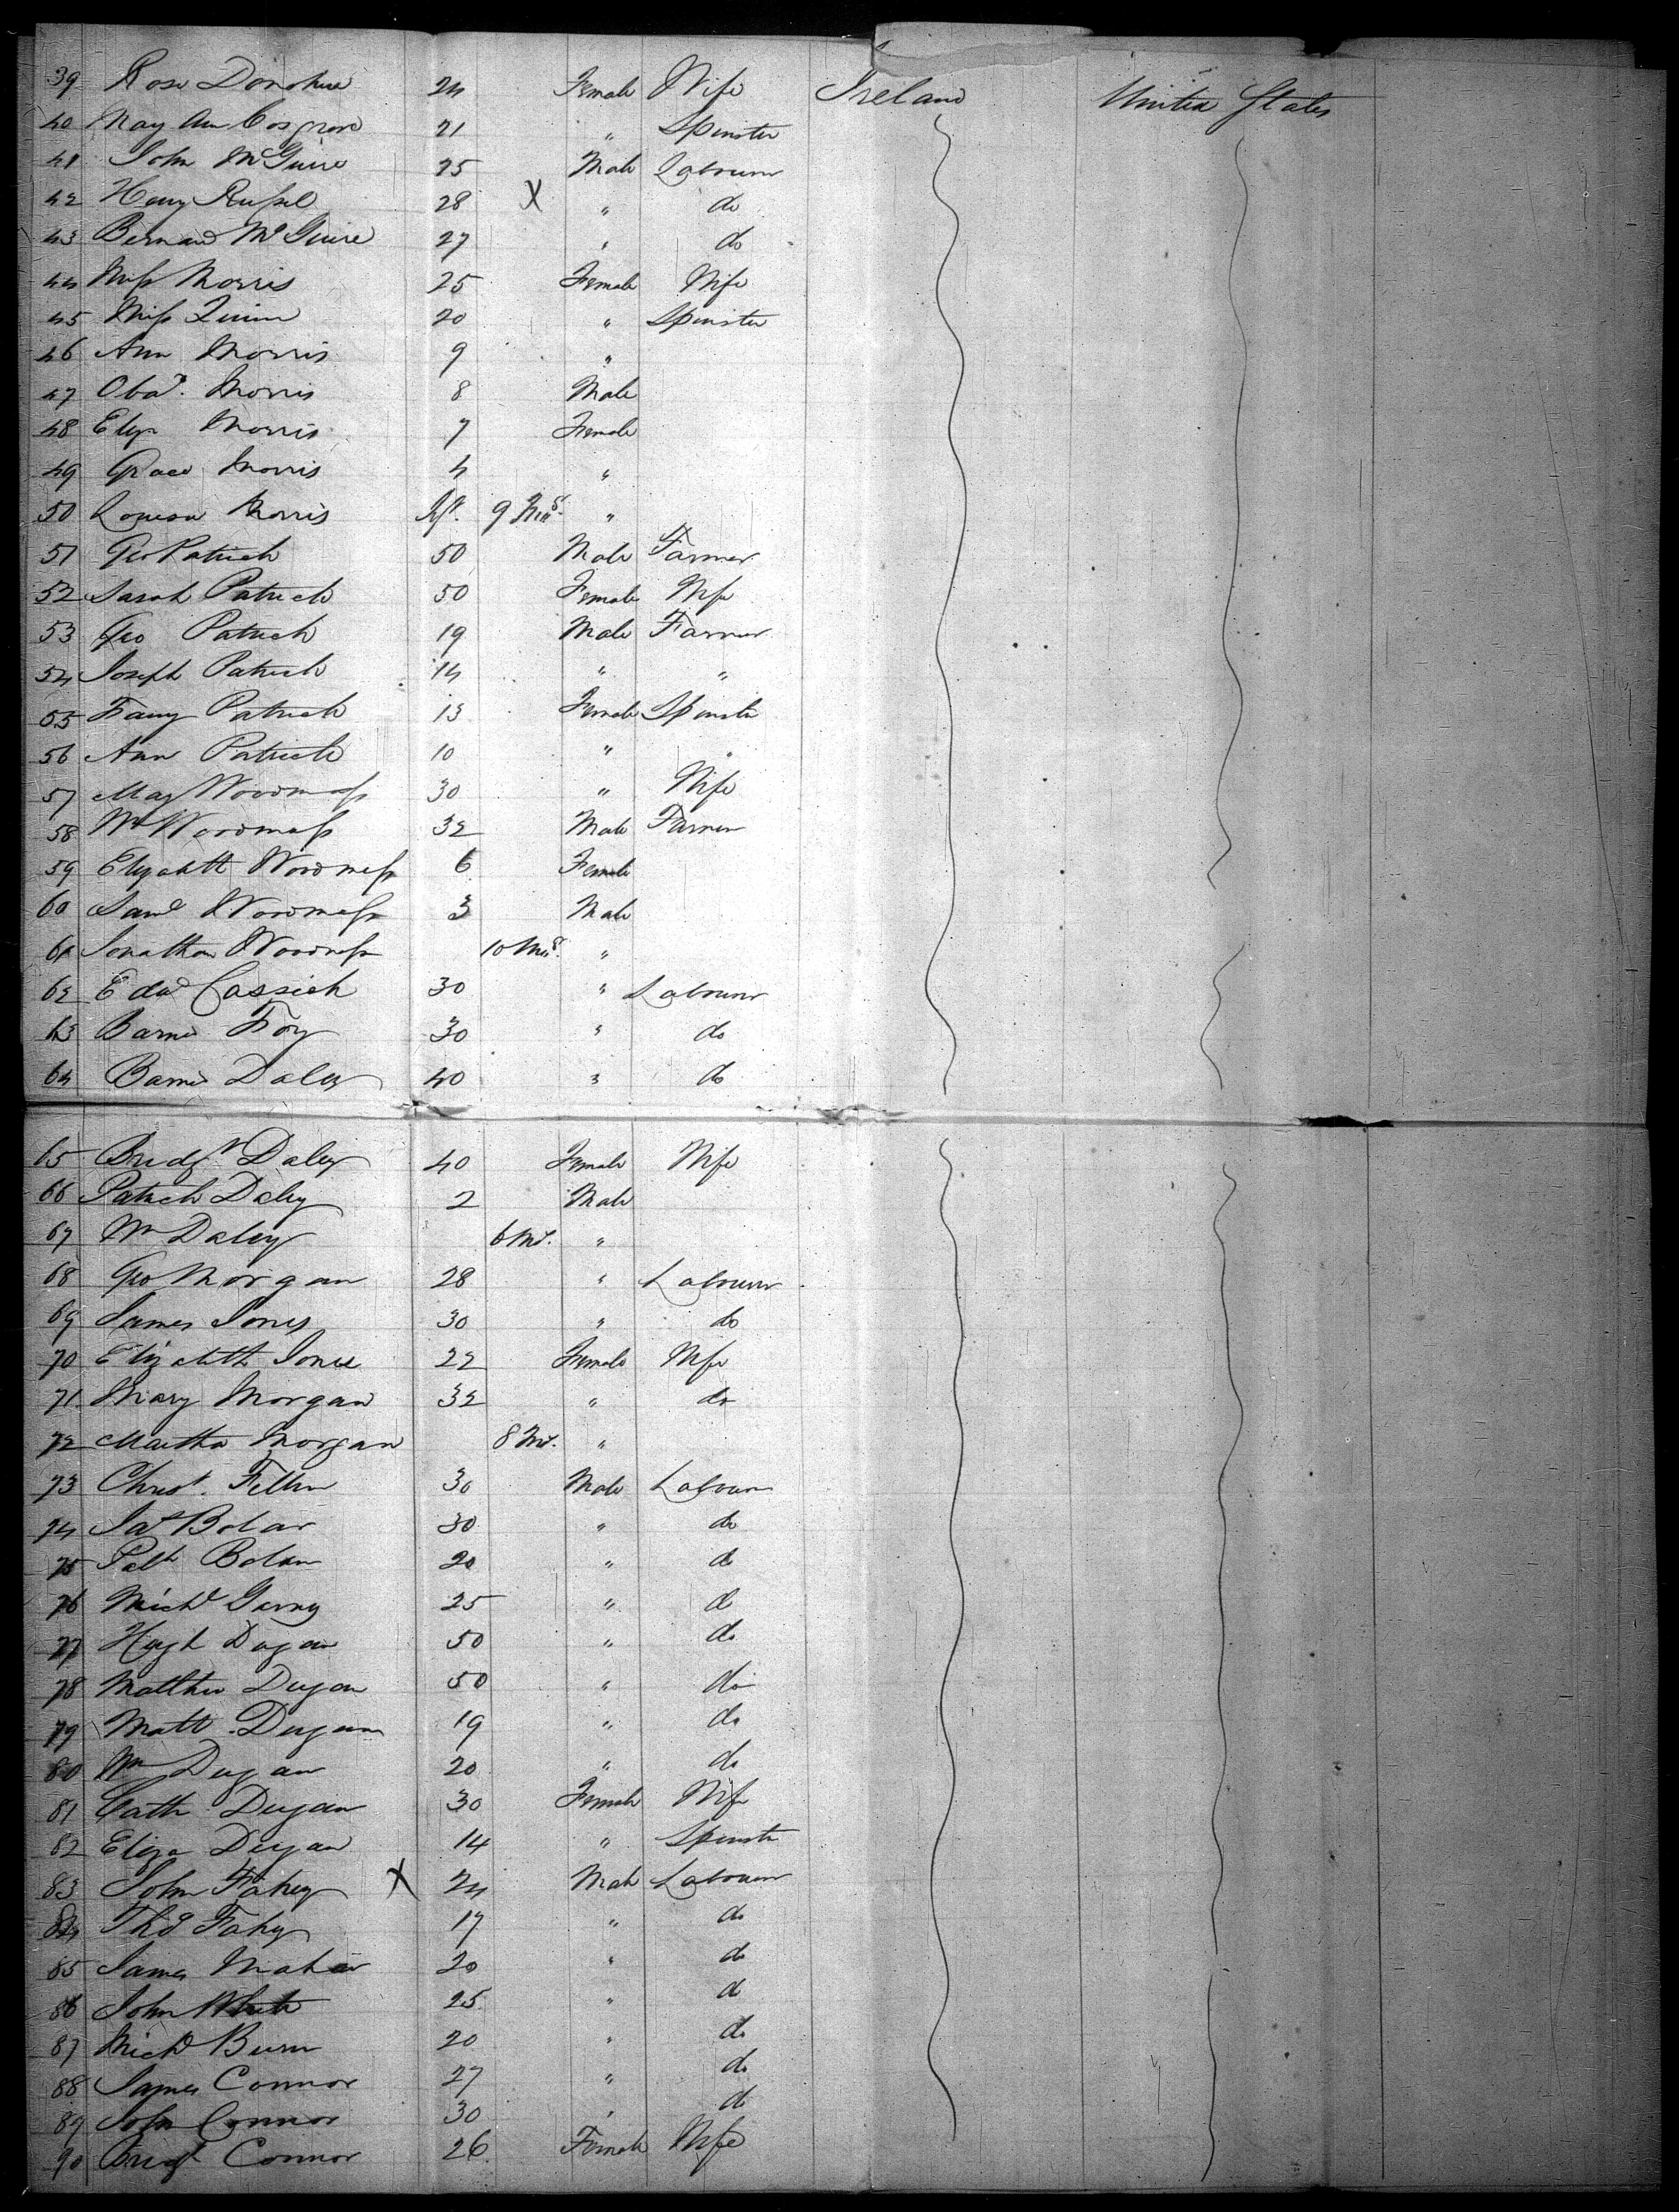 39 Rose Donohue 24 Female Wife Ireland United States
40 May Ann Cosgrove 21 " Spinster
41 John McGuire 25 Male Labourer
42 Henry Russel 28 X " do
43 Bernard McGuire 27 " do
44 Miss Morris 25 Female Wife
45 Miss Quinn 20 " Spinster
46 Ann Morris 9 "
47 Obad. Morris 8 Male
48 Eliza Morris 7 Female
49 Grace Morris 4 "
50 Louisa Morris Inft. 9 Mos. "
51 Geo Patrick 50 Male Farmer
52 Sarah Patrick 50 Female Wife
53 Geo Patrick 19 Male Farmer
54 Joseph Patrick 14 " "
55 Fanny Patrick 13 Female Spinster
56 Ann Patrick 10 " "
57 May Woodmass 30 " Wife
58 Wm Woodmass 32 Male Farmer
59 Elizabeth Woodmass 6 Female
60 Saml Woodmass 3 Male
61 Jonathan Woodmass 10 Mos. "
62 Edwd Cassick 30 " Labourer
63 Barnd Foy 30 " do
64 Barnd Daley 40 " do
65 Bridgt Daley 40 Female Wife
66 Patrick Daley 2 Male
67 Wm Daley 6 Ms. "
68 Geo Morgan 28 " Labourer
69 James Jones 30 " do
70 Elizabeth Jones 22 Female Wife
71 Mary Morgan 32 " do
72 Martha Morgan 8 Ms. "
73 Christ. 30 Male Labourer
74 Jas Bolan 30 " do
75 Patk Bolan 20 " do
76 Michl 25 " do
77 Hugh Dugan 50 " do
78 Matthew Dugan 50 " do
79 Matt. Dugan 19 " do
80 Wm Dugan 20 " do
81 Cath Dugan 30 Female Wife
82 Eliza Dugan 14 " Spinster
83 John Fahey X 24 Male Labourer
84 Thos Fahy 17 " do
85 James Mahar 20 " do
86 John White 25 " do
87 Michl Burn 20 " do
88 James Connor 27 " do
89 John Connor 30 " do
90 Bridgt Connor 26 Female Wife